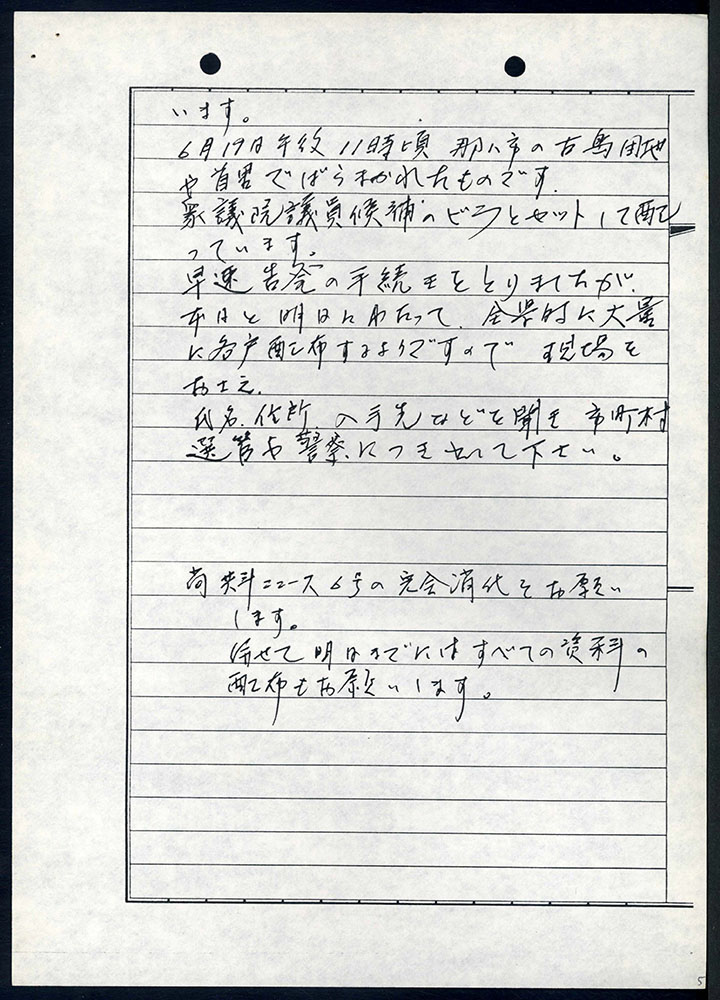 います。
6月19日午後11時頃 那ハ市の古島団地
や首里でばらまかれたものです.
衆議院議員候補のビラとセットして配
っています。
早速告発の手続きをとりましたが、
本日と明日にわたって、全県的に大量
に各戸配布するようですので 現場を
おさえ、
氏名、住所、入手先などを聞き 市町村
選管か警察につき出して下さい。
尚 ニュース6号の完全消化をお願い
します。
併せて明日までにはすべての資料の
配布もお願いします。
5